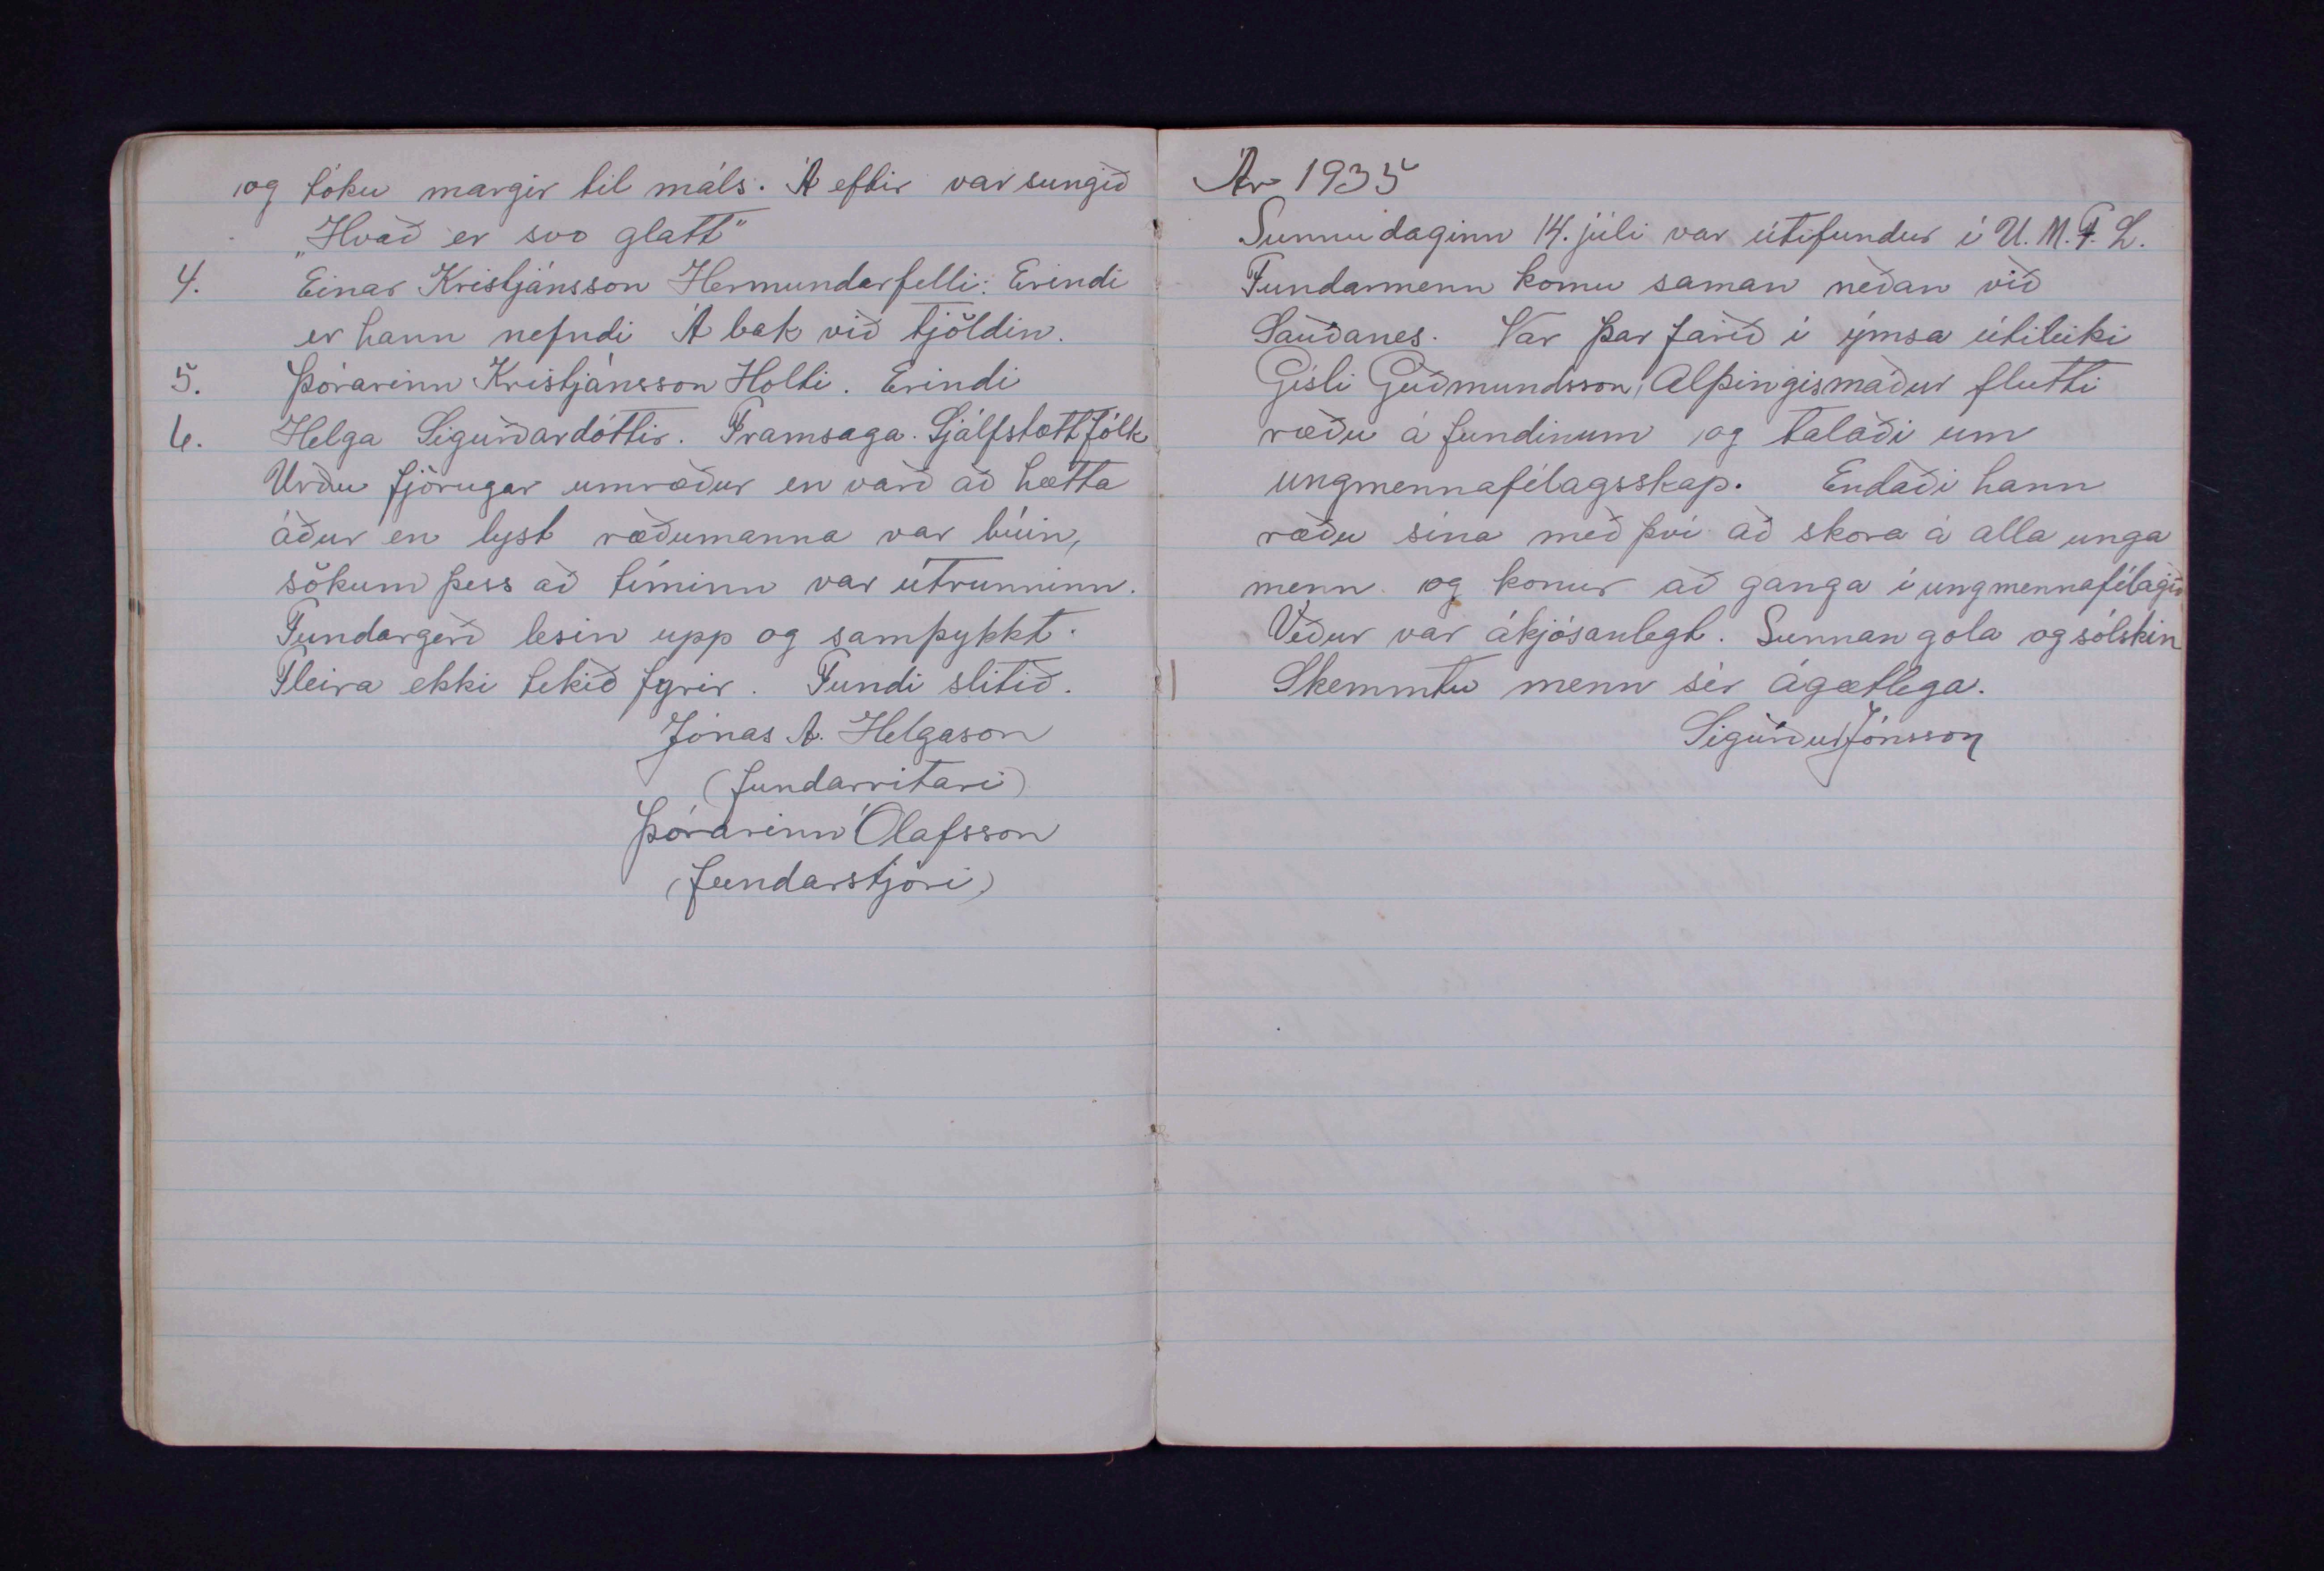 og tóku margir til máls. Á eftir var sungið
„Hvað er svo glatt"
4. Einar Kristjánsson Hermundarfelli: Erindi
er hann nefndi Á bak við tjöldin.
5. Þórarinn Kristjánsson Holti. Erindi
6. Helga Sigurðardóttir. Framsaga. Sjálfstætt fólk
Urðu fjörugar umræður en varð að hætta
áður en lyst ræðumanna var búin,
sökum þess að tíminn var útrunninn.
Fundargerð lesin upp og samþykkt.
Fleira ekki tekið fyrir. Fundi slitið.
Jónas A. Helgason
(fundarritari)
Þórarinn Ólafsson
(fundarstjóri)
Ár 1935
Sunnudaginn 14. júlí var útifundur í U.M.F.L.
Fundarmenn komu saman neðan við
Sauðanes. Var þar farið í ýmsa útileiki
Gísli Guðmundsson, Alþingismaður flutti
ræðu á fundinum og talaði um
ungmennafélagsskap. Endaði hann
ræðu sína með því að skora á alla unga
menn og konur að ganga í ungmennafélagið
Veður var ákjósanlegt. Sunnan gola og sólskin
Skemmtu menn sér ágætlega.
Sigurður Jónsson